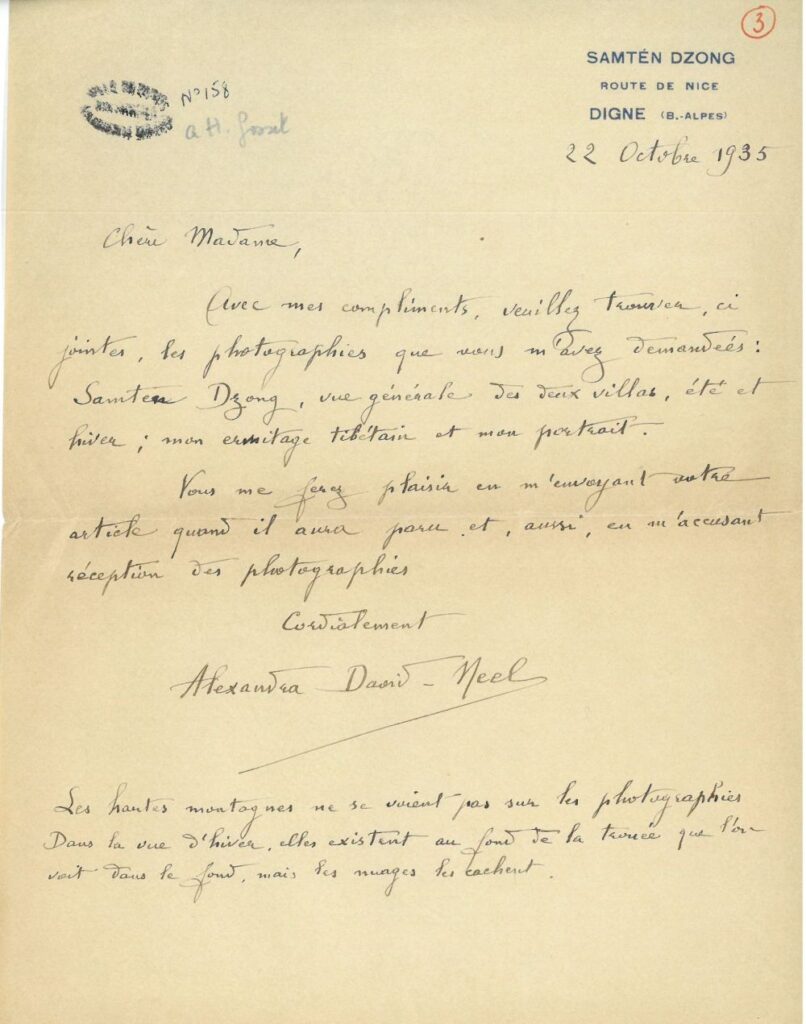 3
SAMTÉN DZONG
ROUTE DE NICE
DIGNE (B.-ALPES)
N° 158
a H.
22 Octobre 1935
Chère Madame,
Avec mes compliments, veuillez trouver, ci
jointes, les photographies que vous m'avez demandeés :
Samten Dzong, vue générale des deux villas, été et
hiver ; mon ermitage tibétain et mon portrait.
Vous me ferez plaisir en m'envoyant votre
article quand il aura paru et, aussi, en m'accusant
réception des photographies
Cordialement
Alexandra David-Neel
Les hautes montagnes ne se voient pas sur les photographies
Dans la vue d'hiver, elles existent au fond de la trouée que l'on
voit dans le fond, mais les nuages les cachent.